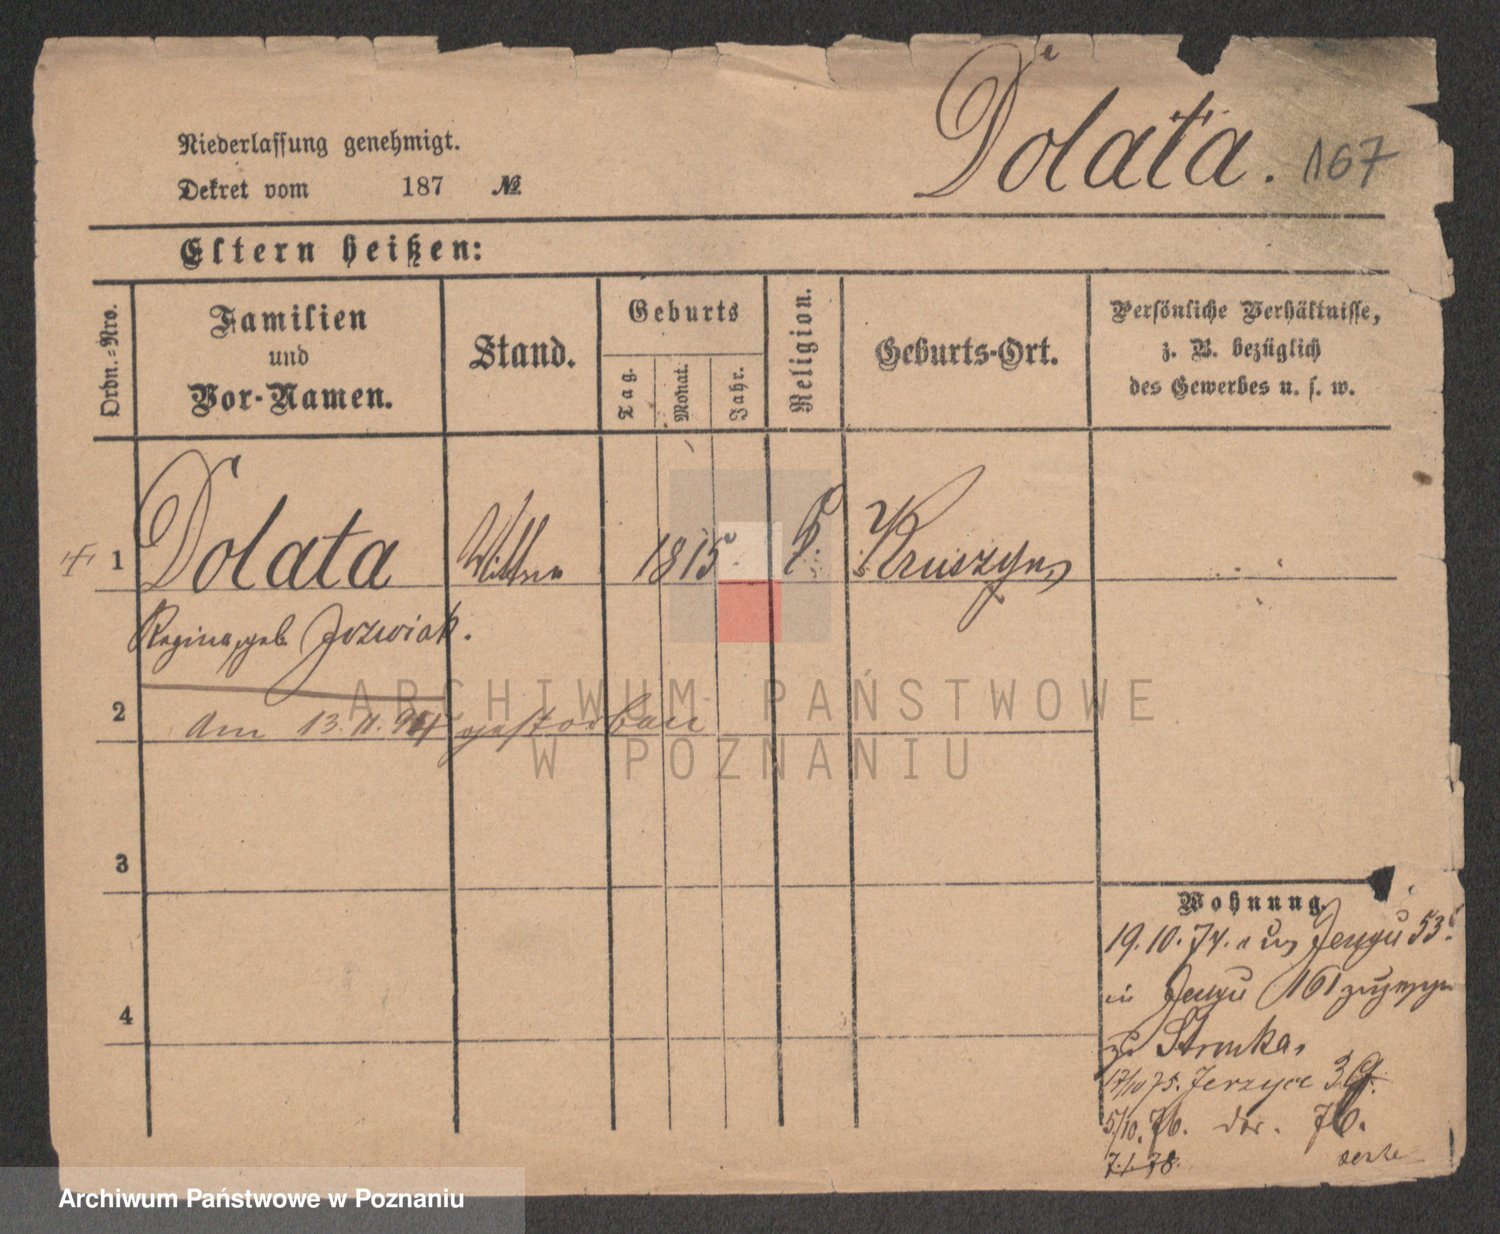 Dolata. 167
Niederlassung genehmigt.
Dekret vom 187 №
Eltern heißen:
Ordn.=Nro.
Familien
und
Vor-Namen.
Stand.
Geburts
Tag.
Monat.
Jahr.
Religion.
Geburts-Ort.
Persönliche Verhältnisse,
z. B. bezüglich
des Gewerbes u. s. w.
1 Dolata 1815
Regina, geb. Jozwiak.
2 am 13. 11. gestorben
3
4
Wohnung.
19. 10. 74. aus 53
in 161
zu
17/10 75. Jerzyce
5/10. 76. 76.
7.1.78.
ARCHIWUM PAŃSTWOWE
W POZNANIU
Archiwum Państwowe w Poznaniu